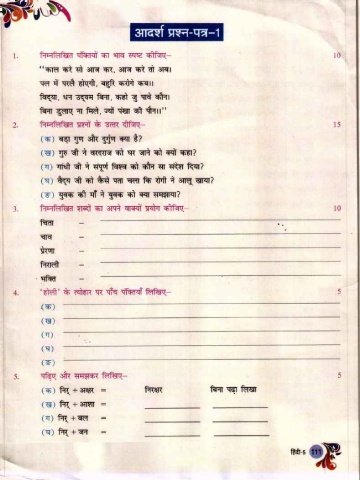 आदर्श प्रश्न-पत्र-1
1. निम्नलिखित पंक्तियों का भाव स्पष्ट कीजिए- 10
"काल करे सो आज कर, आज करे तो अब।
पल में परलै होएगी, बहुरि करोगे कब।।
विद्या, धन उद्यम बिना, कहो जु पावे कौन।
बिना डुलाए ना मिले, ज्यों पंखा की पौन।।"
2. निम्नलिखित प्रश्नों के उत्तर दीजिए- 15
(क) बड़ा गुण और दुर्गुण क्या है?
(ख) गुरु जी ने वरदराज को घर जाने को क्यों कहा?
(ग) गांधी जी ने संपूर्ण विश्व को कौन सा संदेश दिया?
(घ) वैद्य जी को कैसे पता चला कि रोगी ने आलू खाया?
(ङ) युवक की माँ ने युवक को क्या समझाया?
3. निम्नलिखित शब्दों का अपने वाक्यों प्रयोग कीजिए- 10
चिता -
चाव -
प्रेरणा -
निराली -
भक्ति -
4. 'होली' के त्योहार पर पाँच पंक्तियाँ लिखिए- 5
(क)
(ख)
(ग)
(घ)
(ङ)
5. पढ़िए और समझकर लिखिए- 5
(क) निर् + अक्षर = निरक्षर बिना पढ़ा लिखा
(ख) निर् + आशा =
(ग) निर् + बल =
(घ) निर् + जन =
हिंदी-5 111